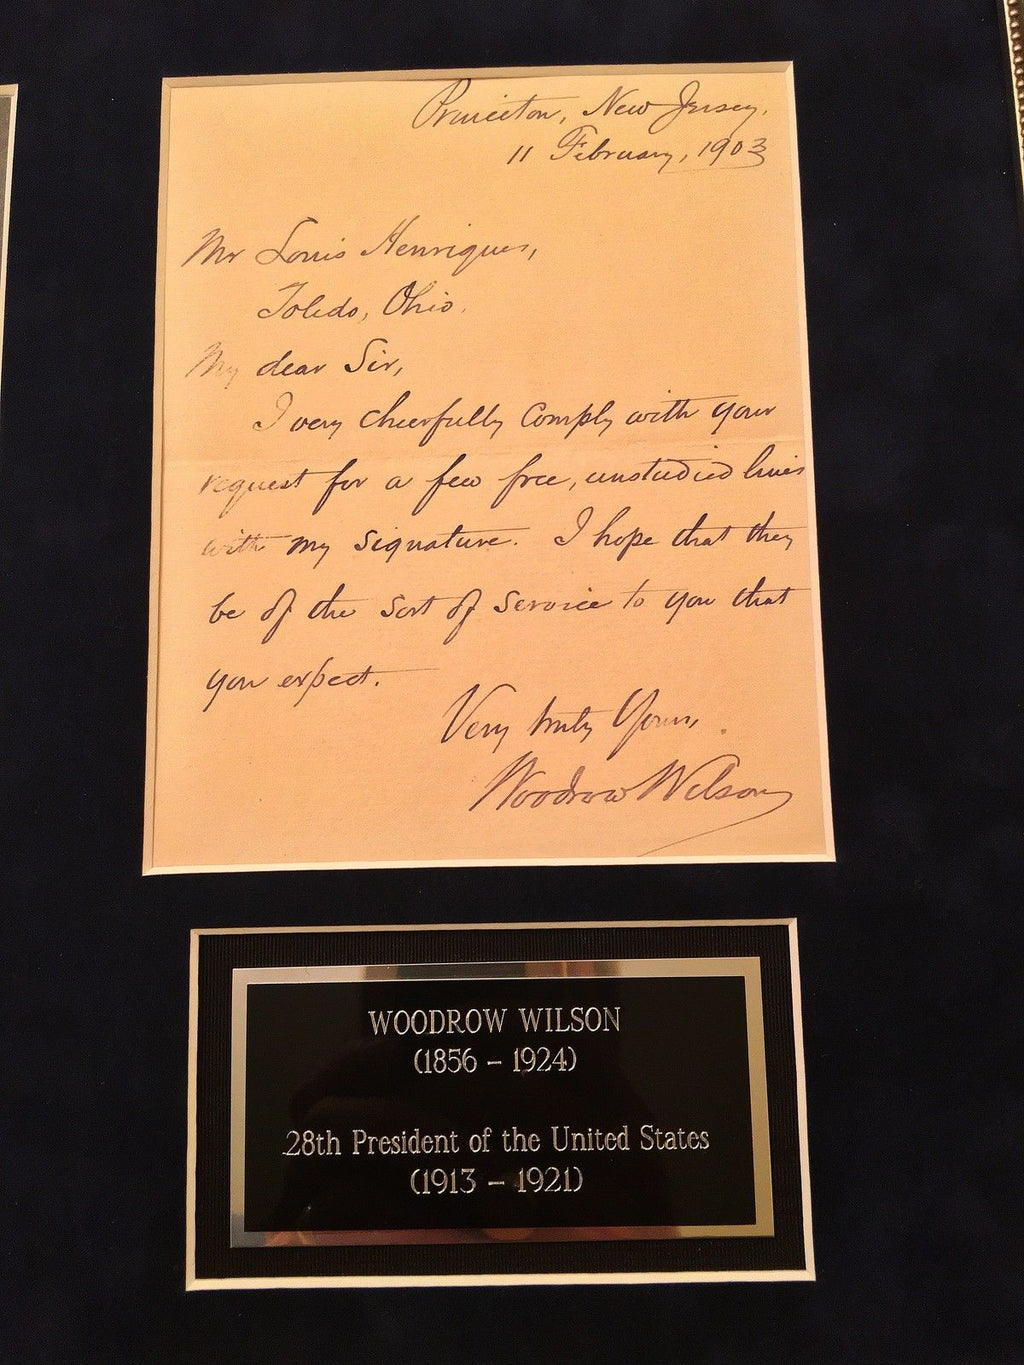 Princeton, New Jersey,
11 February, 1903
Mr Louis Henriques,
Toledo, Ohio.
My dear Sir,
I very cheerfully comply with your
request for a few free, unstudied lines
with my signature. I hope that they
be of the sort of service to you that
you expect.
Very truly Yours,
Woodrow Wilson
WOODROW WILSON
(1856 – 1924)
28th President of the United States
(1913 – 1921)